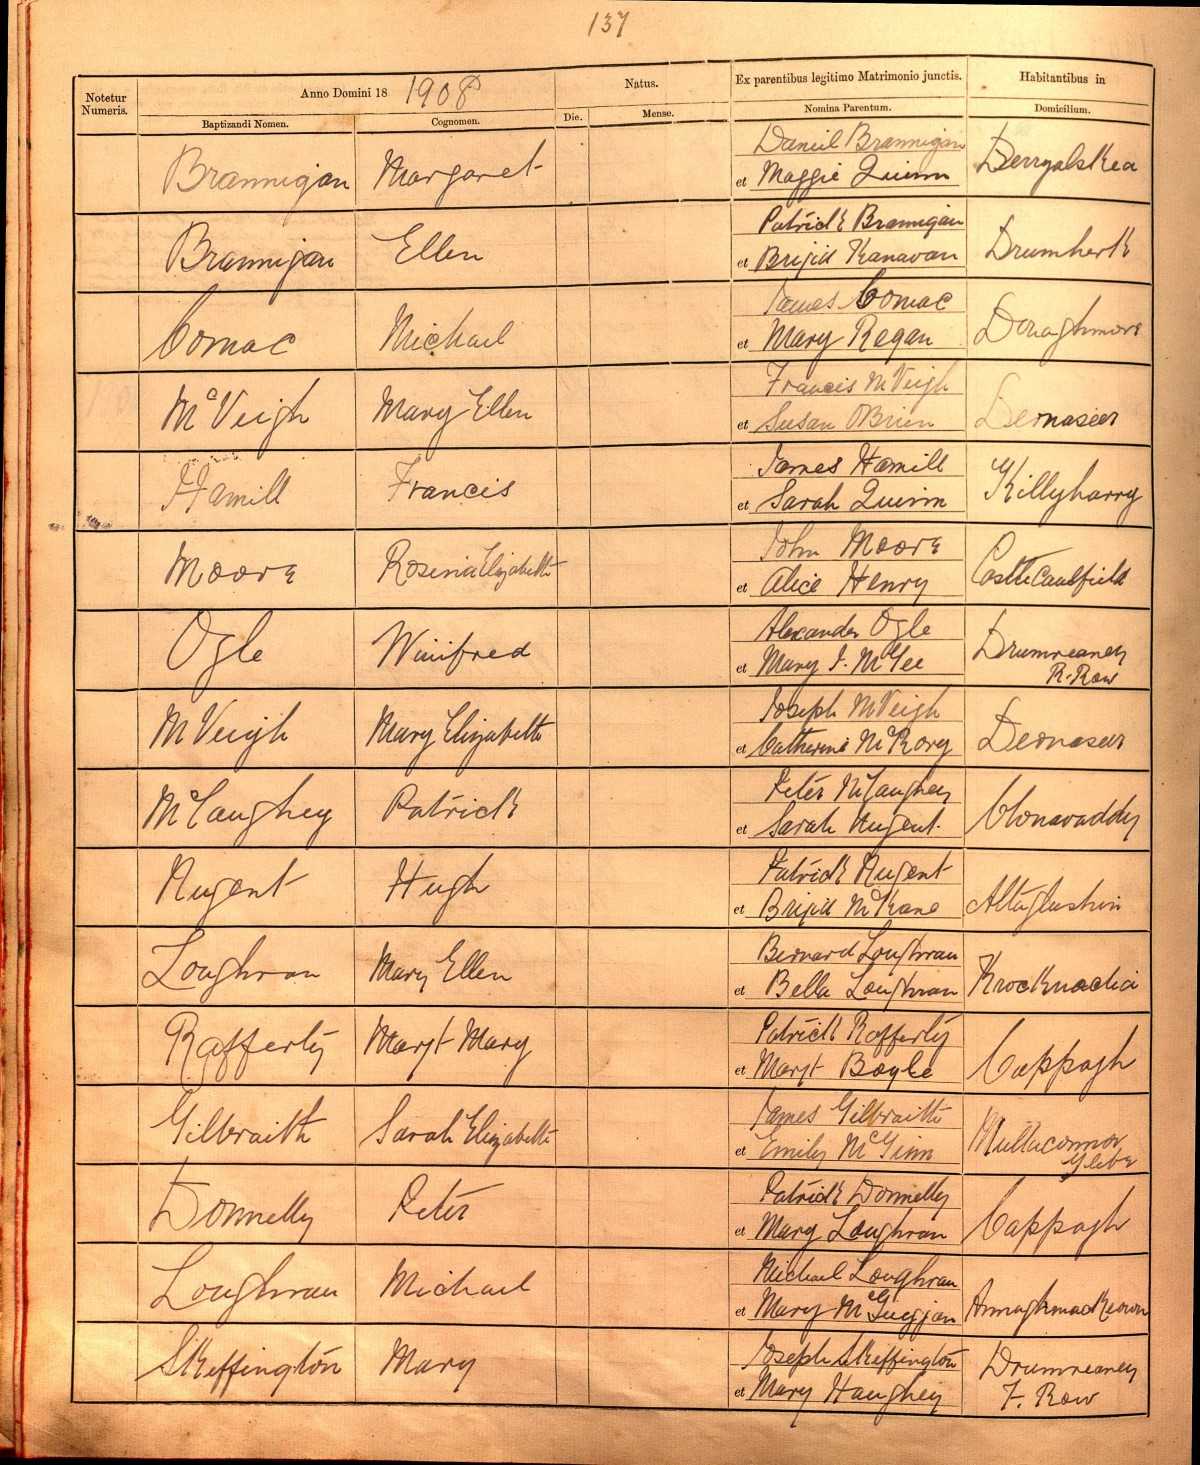 137
Notetur Numeris.
Anno Domini 18 1908
Natus.
Ex parentibus legitimo Matrimonio junctis.
Habitantibus in
Baptizandi Nomen.
Cognomen.
Die.
Mense.
Nomina Parentum.
Domicilium.
Brannigan Margaret Daniel Brannigan Derryalskea
et Maggie Quinn
Brannigan Ellen Patrick Brannigan
et Brigid Kanavan
Comac Michael James Comac Donaghmore
et Mary Regan
McVeigh Mary Ellen Francis McVeigh Dernaseer
et Susan OBrien
Hamill Francis James Hamill Killyharry
et Sarah Quinn
Moore Rosena Elizabeth John Moore CastleCaulfield
et Alice Henry
Ogle Winifred Alexander Ogle Drumreaney
et Mary J. McGee R. Row
McVeigh Mary Elizabeth Joseph McVeigh Dernaseer
et Catherine McRory
McCaughey Patrick Peter McCaughey Clonavaddy
et Sarah Nugent.
Nugent Hugh Patrick Nugent Altaglushin
et Brigid McKane
Loughran Mary Ellen Bernard Loughran Krocknaclia
et Bella Loughran
Rafferty Margt Mary Patrick Rafferty Cappagh
et Margt Boyle
Gilbraith Sarah Elizabeth James Gilbraith Mullaconnor
et Emily McGinn Glebe
Donnelly Peter Patrick Donnelly Cappagh
et Mary Loughran
Loughran Michael Michael Loughran Annaghmackeown
et Mary McGuigan
Skeffington Mary Joseph Skeffington Drumreaney
et Mary Haughey F. Row